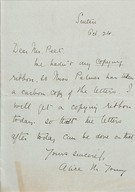 Oct. 24
Dear Mr. Post.
We hadn't any copying
ribbon so Miss Palmer has taken
a carbon copy of the letters. I
will get a copying ribbon
today so that the letters
after today can be done on that
Yours sincerely,
Alice M.